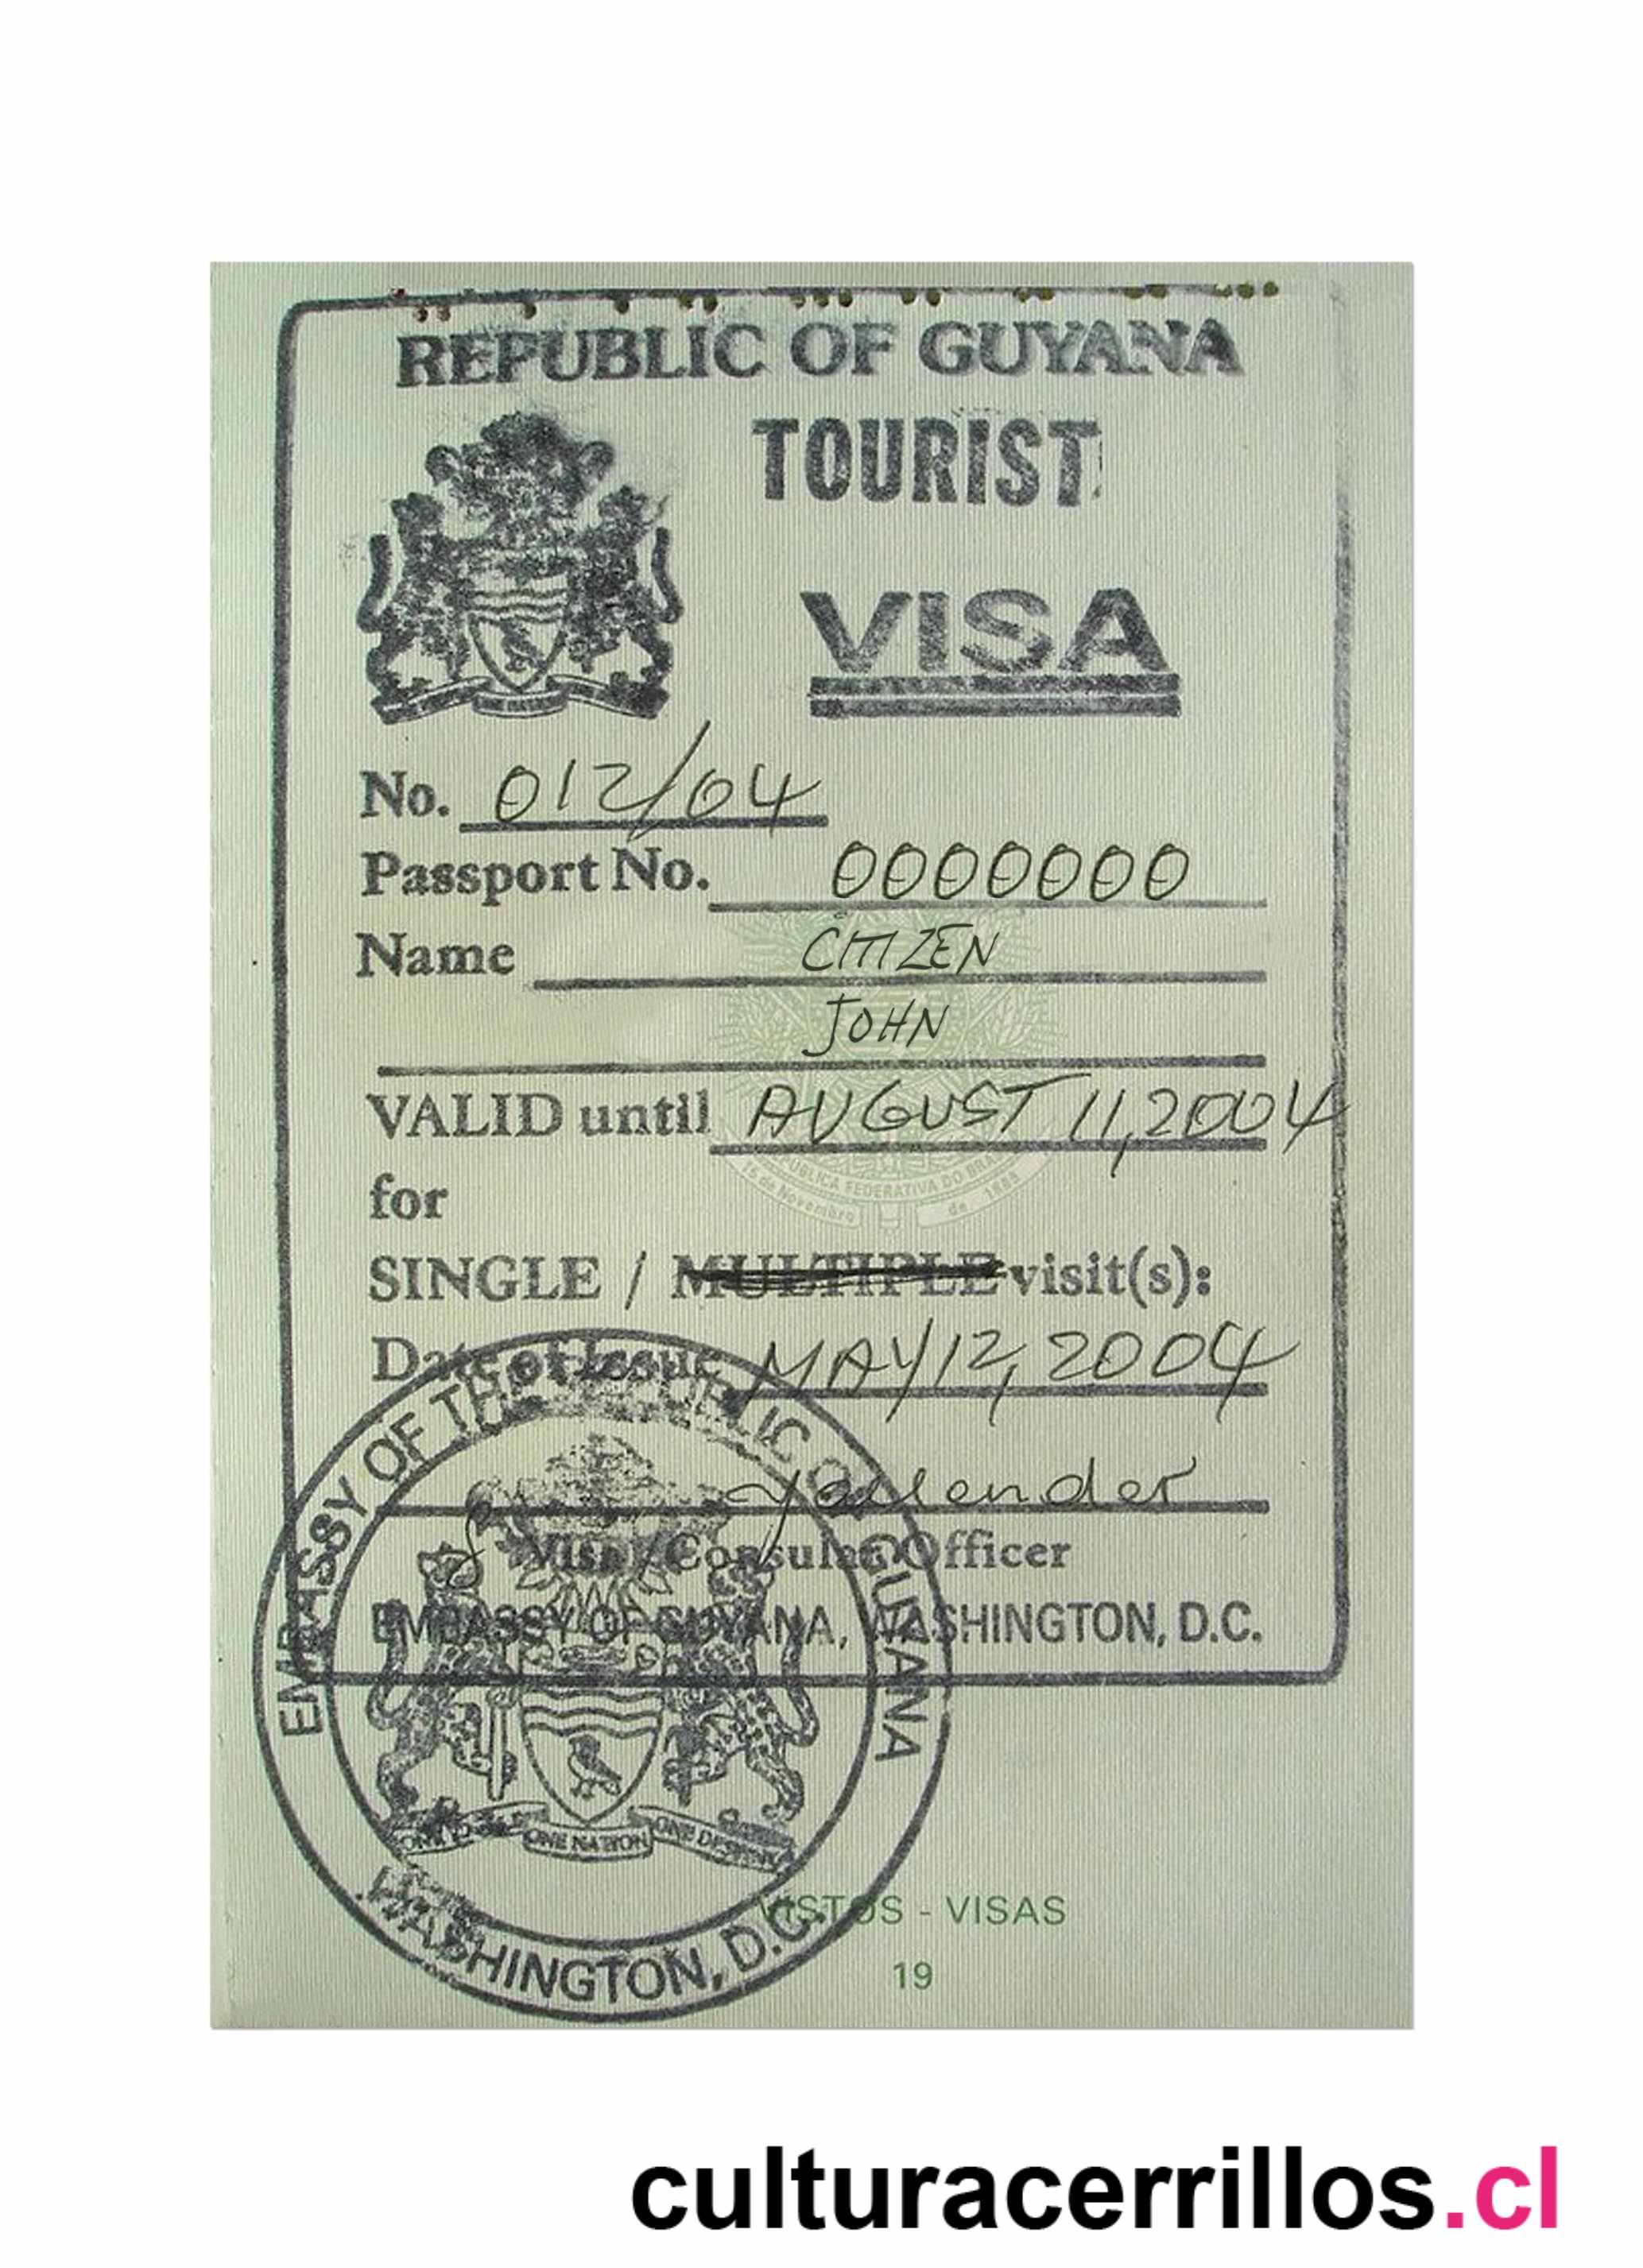 REPUBLIC OF GUYANA
TOURIST
VISA
No. 012/04
Passport No. 0000000
Name CITIZEN
JOHN
VALID until AUGUST 11, 2004
REPÚBLICA FEDERATIVA DO BRASIL
15 de Novembro de 1889
for
SINGLE / MULTIPLE visit(s):
Date of Issue MAY 12, 2004
Visa / Consular Officer
EMBASSY OF GUYANA, WASHINGTON, D.C.
EMBASSY OF THE REPUBLIC OF GUYANA
ONE NATION ONE DESTINY
WASHINGTON, D.C.
VISTOS - VISAS
19
culturacerrillos.cl